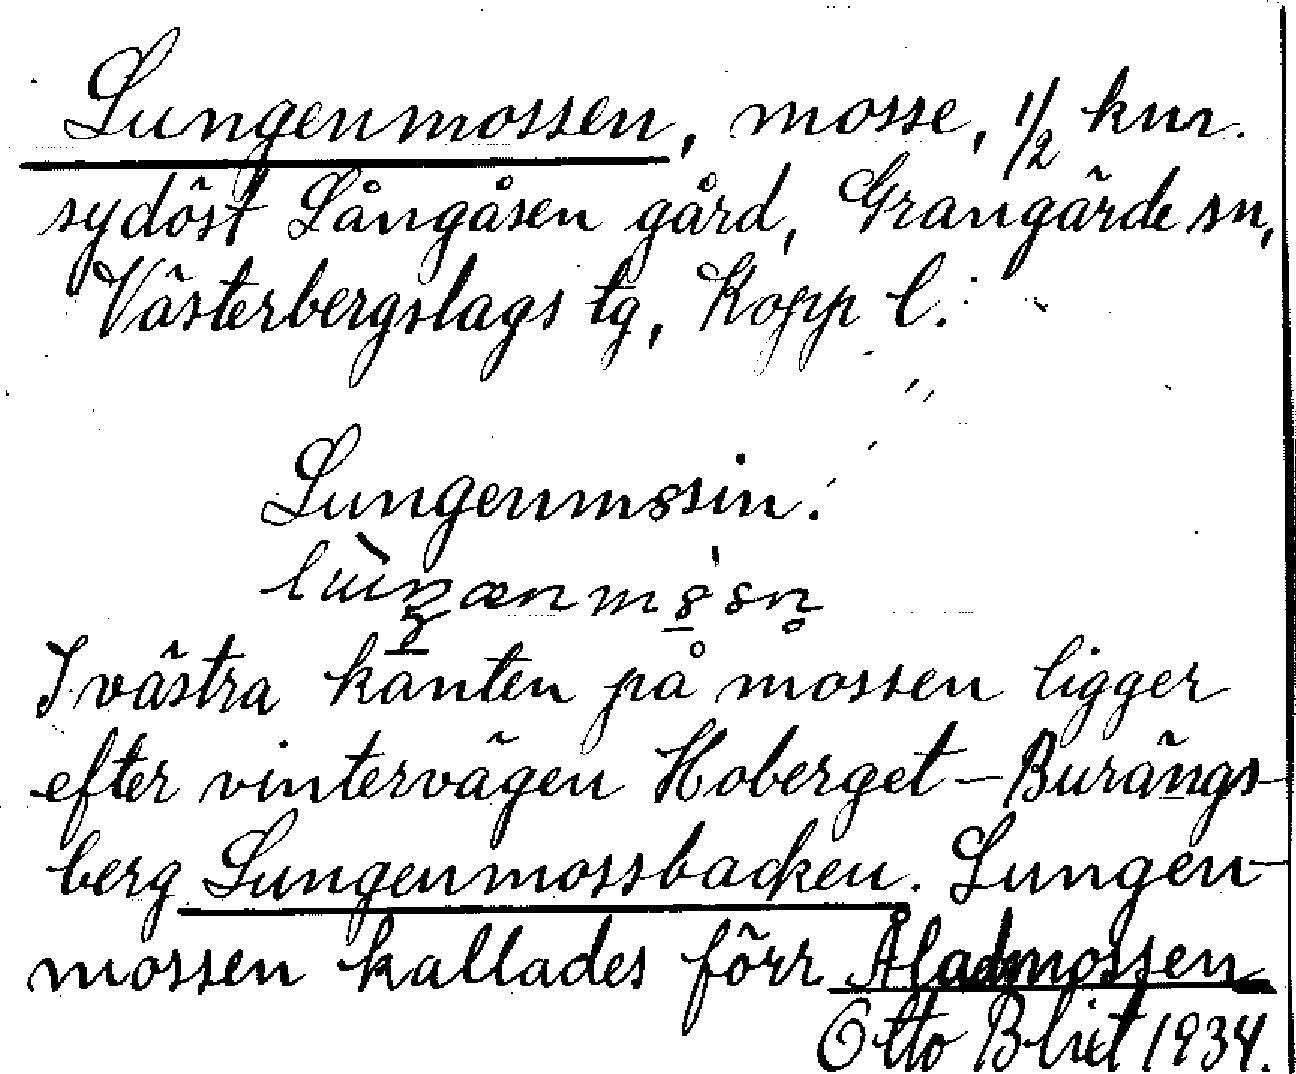 Lungenmossen, mosse, 1/2 km.
sydöst Långåsen gård, Grangärde sn,
Västerbergslags tg, Kopp l.
Lungenmossin.
I västra kanten på mossen ligger
efter vintervägen Hoberget - Burängs-
berg Lungenmossbacken. Lungen-
mossen kallades förr
Otto Blixt 1934.